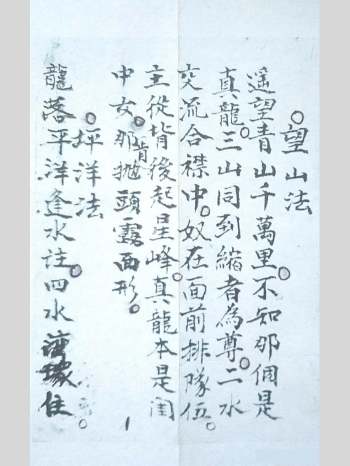 望山法
遥望青山千萬里。不知那個是
真龍。三山同到縮者為尊。二水
交流合襟中。奴在面前排隊伍。
主從背後起星峰。真龍本是閨
中女。那肯拋頭露面形。
坪洋法
龍落平洋逢水注。四水